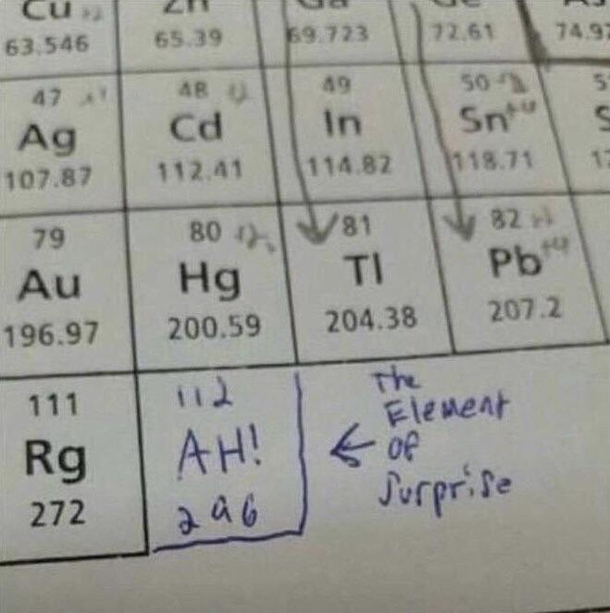 Cu Zn Ga Ge As
63.546 65.39 69.723 72.61 74.92
47 48 49 50
Ag Cd In Sn+4 S
107.87 112.41 114.82 118.71
79 80 81 82
Au Hg Tl Pb+4
196.97 200.59 204.38 207.2
111 112 The
Element
Rg AH! ← of
272 296 Surprise